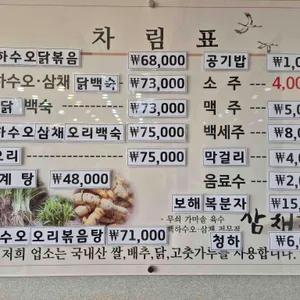 차 림 표
하수오닭볶음 ₩68,000 공기밥 ₩1,0
하수오·삼채 닭백숙 ₩73,000 소 주 4,00
닭 백숙 ₩73,000 맥 주 ₩5,
하수오삼채오리백숙 ₩75,000 백세주 ₩8,0
오리 ₩75,000 막걸리 ₩4,0
계 탕 ₩48,000 음료수 ₩2,0
보해 복분자 ₩15,
무쇠 가마솥 육수
삼채
백하수오·삼채 전문점
수오 오리볶음탕 ₩71,000 청하 ₩6,
저희 업소는 국내산 쌀,배추,닭,고춧가루를 사용합니다.